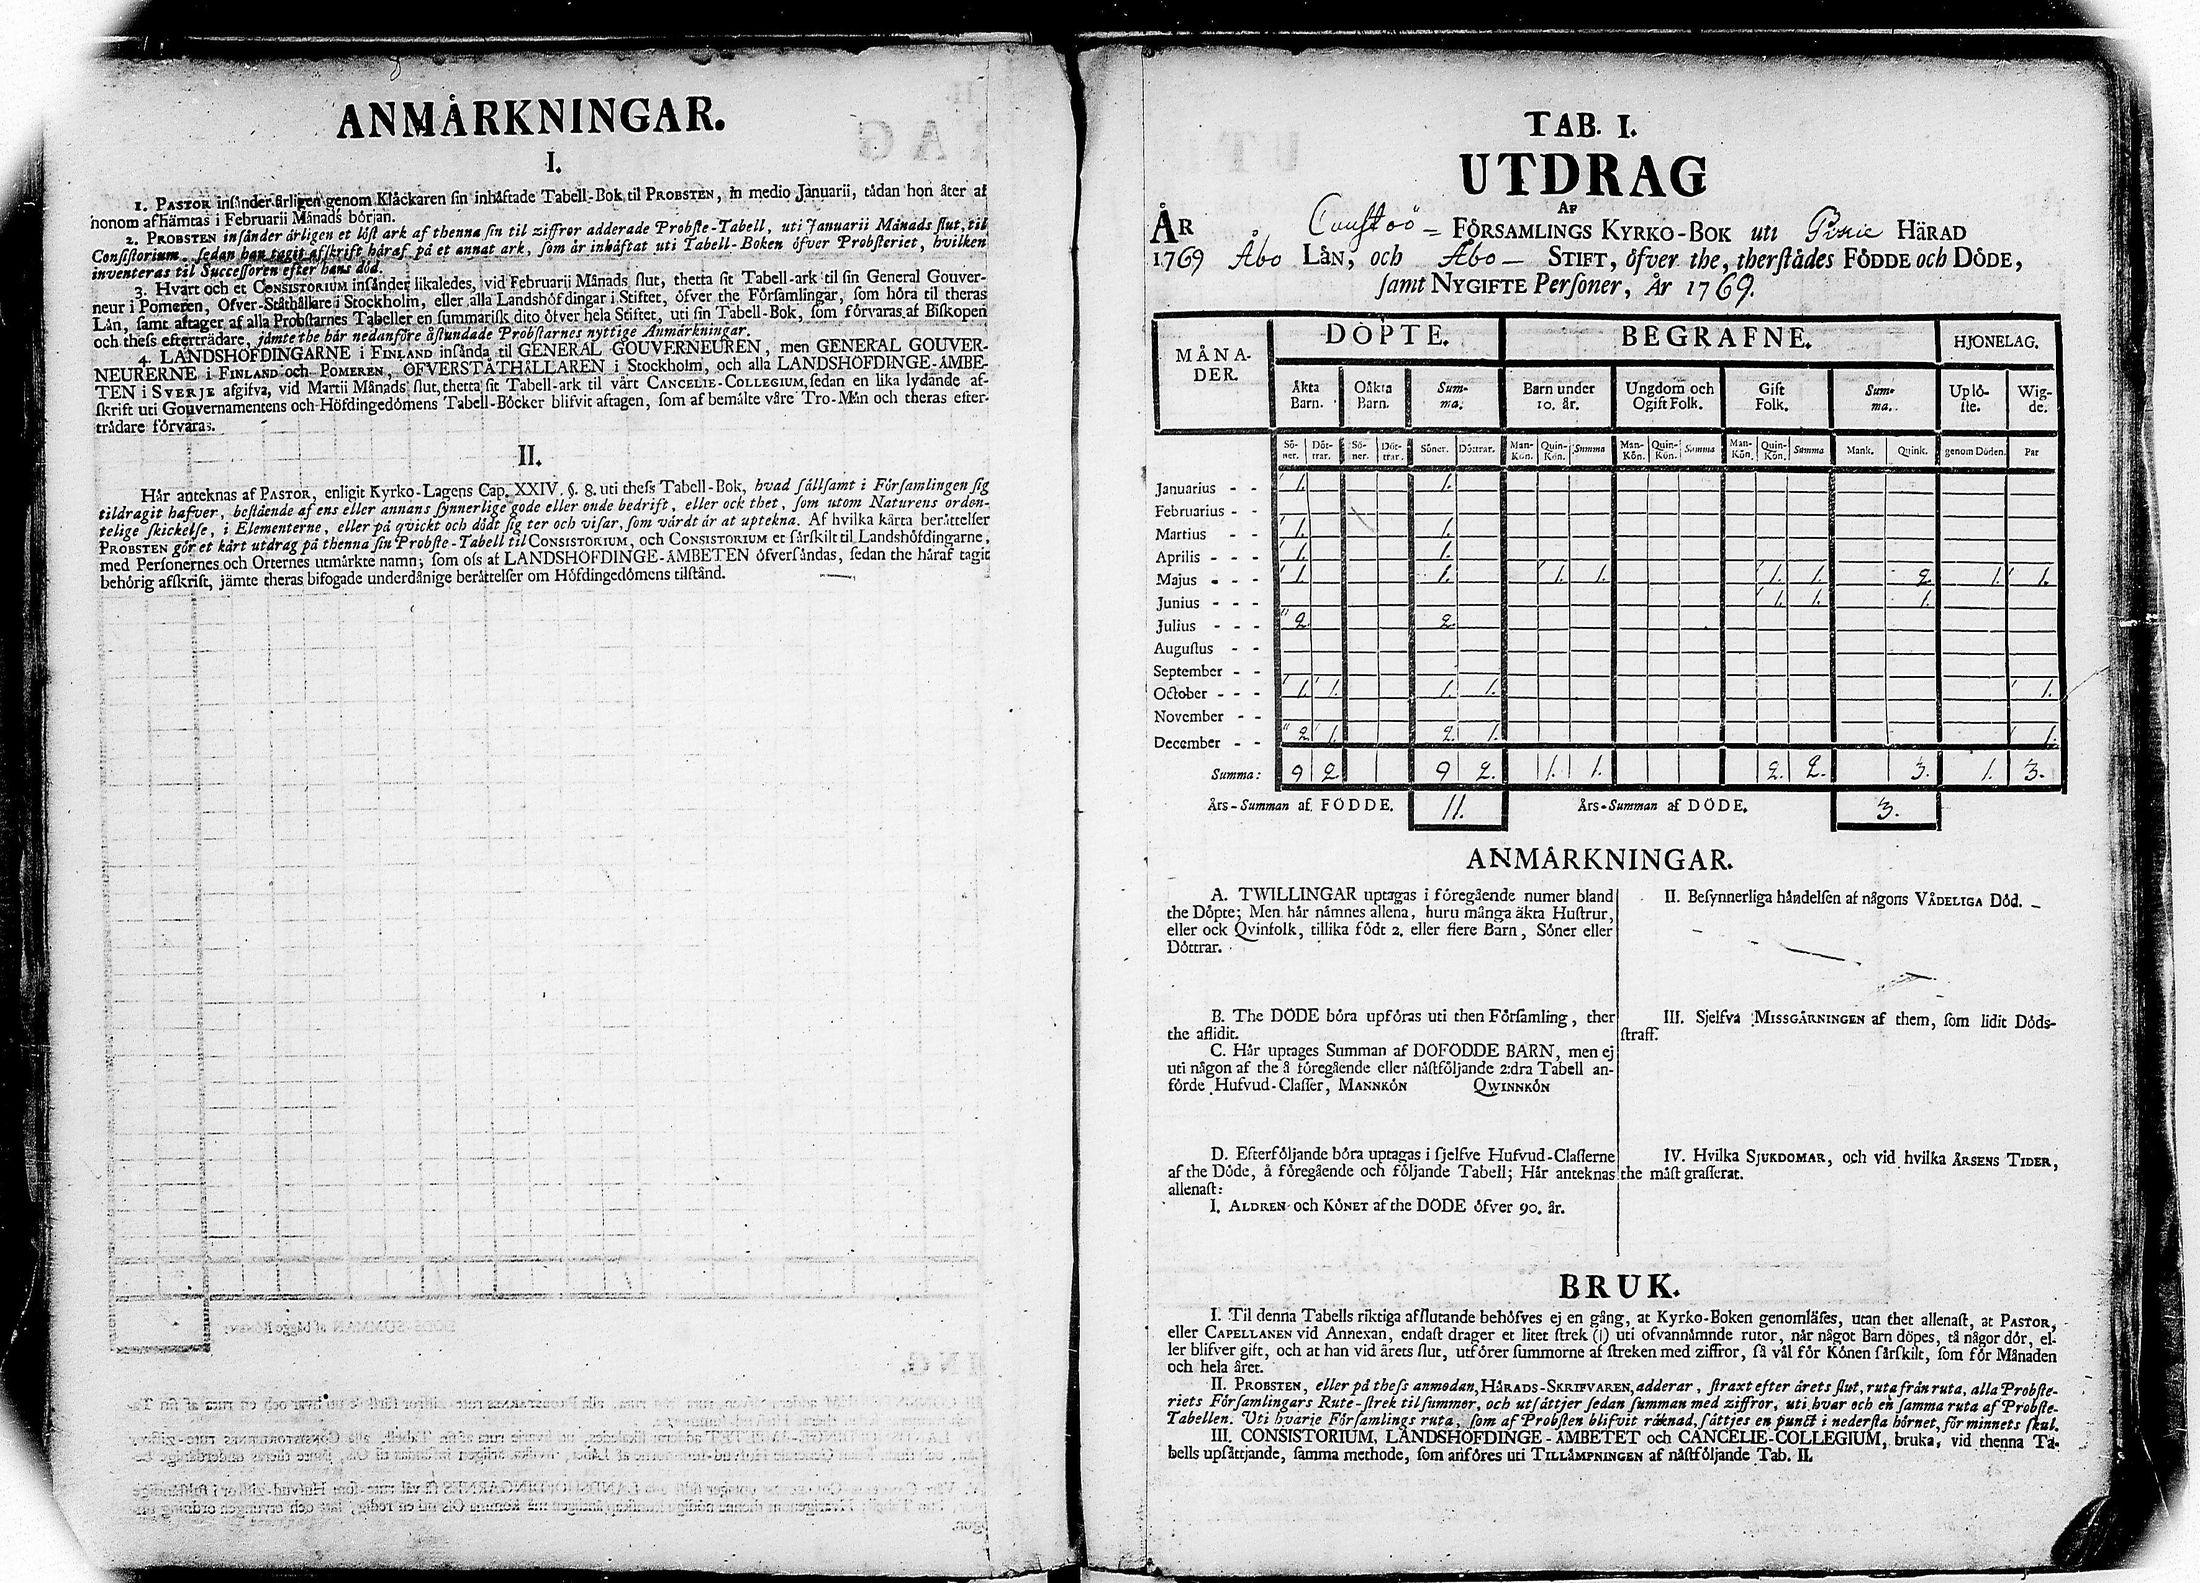 ANMÄRKNINGAR.
I.
1. PASTOR insänder årligen genom Klåckaren sin inhäftade Tabell-Bok til PROBSTEN, in medio Januarii, tådan hon åter af
honom afhämtas i Februarii Månads början.
2. PROBSTEN insånder årligen et löst ark af thenna sin til ziffror adderade Probste-Tabell, uti Januarii Månads slut, til
Consistorium, sedan han tagit afskrift håraf på et annat ark, som år inhåftat uti Tabell-Boken öfver Probsteriet, hvilken
inventeras til Successoren efter hans död.
3. Hvart och et CONSISTORIUM insånder likaledes, vid Februarii Månads slut, thetta sit Tabell-ark til sin General Gouver-
neur i Pomeren, Öfver-Ståthållare i Stockholm, eller alla Landshöfdingar i Stiftet, öfver the Församlingar, som höra til theras
Län, samt aftager af alla Probstarnes Tabeller en summarisk dito öfver hela Stiftet, uti sin Tabell-Bok, som förvaras af Biskopen
och thess efterträdare, jämte the här nedanföre åstundade Probstarnes nyttige Anmärkningar.
4. LANDSHÖFDINGARNE i FINLAND insånda til GENERAL GOUVERNEUREN, men GENERAL GOUVER-
NEURERNE i FINLAND och POMEREN, ÖFVERSTÅTHÅLLAREN i Stockholm, och alla LANDSHÖFDINGE-ÄMBE-
TEN i SVERJE afgifva, vid Martii Månads slut, thetta sit Tabell-ark til vårt CANCELIE-COLLEGIUM, sedan en lika lydande af-
skrift uti Gouvernamentens och Höfdingedömens Tabell-Böcker blifvit aftagen, som af bemälte våre Tro-Män och theras efter-
trädare förvaras.
II.
Här anteknas af PASTOR, enligit Kyrko-Lagens Cap. XXIV. §. 8. uti thess Tabell-Bok, hvad sällsamt i Församlingen sig
tildragit hafver, bestående af ens eller annans synnerlige gode eller onde bedrift, eller ock thet, som utom Naturens orden-
telige skickelse, i Elementerne, eller på qvickt och dödt sig ter och visar, som värdt är at uptekna. Af hvilka kårta berättelser
PROBSTEN gör et kårt utdrag på thenna sin Probste-Tabell til CONSISTORIUM, och CONSISTORIUM et särskilt til Landshöfdingarne,
med Personernes och Orternes utmärkte namn; som oss af LANDSHÖFDINGE-ÄMBETEN öfversändas, sedan the häraf tagit
behörig afskrift, jämte theras bifogade underdånige berättelser om Höfdingedömens tilstånd.
TAB. I.
UTDRAG
AF
ÅR FÖRSAMLINGS KYRKO-BOK uti HÄRAD
1769 Åbo LÄN, och Åbo STIFT, öfver the, therstådes FÖDDE och DÖDE,
samt NYGIFTE Personer, År 1769.
MÅNA-
DER. DÖPTE. BEGRAFNE. HJONELAG.
Äkta
Barn. Oäkta
Barn. Sum-
ma. Barn under
10. år. Ungdom och
Ogift Folk. Gift
Folk. Sum-
ma. Uplö-
ste. Wig-
de.
Sö-
ner. Döt-
trar. Sö-
ner. Döt-
trar. Söner. Döttrar. Man-
Kön. Quin-
Kön. Summa Man-
Kön. Quin-
Kön. Summa Man-
Kön. Quin-
Kön. Summa Mank. Quink. genom Döden. Par
Januarius - - 1. 1.
Februarius - -
Martius - - - 1. 1.
Aprilis - - - 1. 1.
Majus - - - 1. 1. 1. 1. 1. 1. 2. 1. 1.
Junius - - - 1. 1. 1.
Julius - - - 2. 2.
Augustus - -
September - -
October - - - 1. 1. 1. 1. 1.
November - -
December - - 2. 1. 2. 1. 1.
Summa: 9 2. 9 2. 1. 1. 2. 2. 3. 1. 3.
Års-Summan af FÖDDE. 11. Års-Summan af DÖDE. 3.
ANMÄRKNINGAR.
A. TWILLINGAR uptagas i föregående numer bland
the Döpte; Men här nämnes allena, huru många äkta Hustrur,
eller ock Qvinfolk, tillika födt 2. eller flere Barn, Söner eller
Döttrar.
B. The DÖDE böra upföras uti then Församling, ther
the aflidit.
C. Här uptages Summan af DÖFÖDDE BARN, men ej
uti någon af the å föregående eller nästföljande 2:dra Tabell an-
förde Hufvud-Classer, MANNKÖN QWINNKÖN
D. Efterföljande böra uptagas i sjelfve Hufvud-Classerne
af the Döde, å föregående och följande Tabell; Här anteknas
allenast:
I. ÅLDREN och KÖNET af the DÖDE öfver 90. år.
II. Besynnerliga händelsen af någons VÅDELIGA Död.
III. Sjelfva MISSGÄRNINGEN af them, som lidit Döds-
straff.
IV. Hvilka SJUKDOMAR, och vid hvilka ÅRSENS TIDER,
the mäst grasserat.
BRUK.
I. Til denna Tabells riktiga afslutande behöfves ej en gång, at Kyrko-Boken genomläses, utan thet allenast, at PASTOR,
eller CAPELLANEN vid Annexan, endast drager et litet strek (|) uti ofvannämnde rutor, når något Barn döpes, tå någor dör, el-
ler blifver gift, och at han vid årets slut, utförer summorne af streken med ziffror, så väl för Könen särskilt, som för Månaden
och hela året.
II. PROBSTEN, eller på thess anmodan, HÄRADS-SKRIFVAREN, adderar, straxt efter årets slut, ruta från ruta, alla Probste-
riets Församlingars Rute-strek til summor, och utsättjer sedan summan med ziffror, uti hvar och en samma ruta af Probste-
Tabellen. Uti hvarje Församlings ruta, som af Probsten blifvit räknad, sättjes en punct i nedersta hörnet, för minnets skul.
III. CONSISTORIUM, LANDSHÖFDINGE-ÄMBETET och CANCELIE-COLLEGIUM, bruka, vid thenna Ta-
bells upsättjande, samma methode, som anföres uti TILLÄMPNINGEN af nästföljande Tab. II.